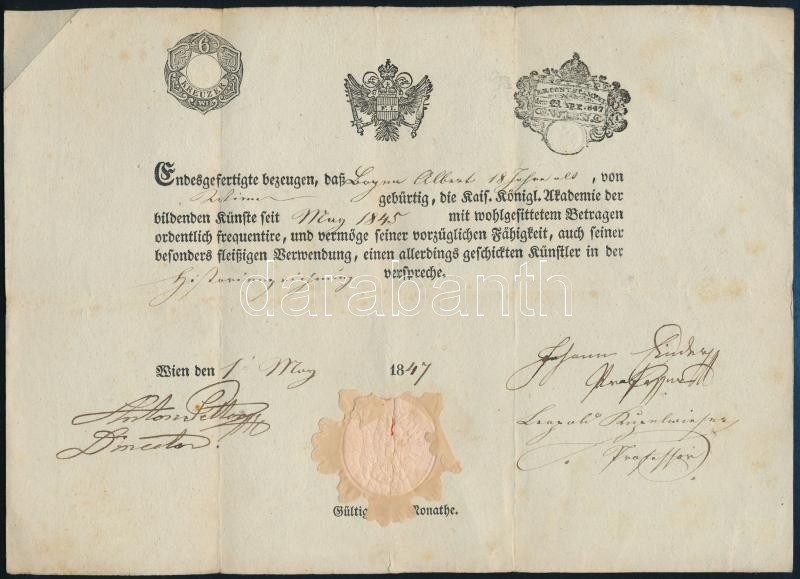 6
KREUZER
F. I.
Endesgefertigte bezeugen, daß Albert 18 Jahre alt, von
gebürtig, die Kais. Königl. Akademie der
bildenden Künste seit May 1845 mit wohlgesittetem Betragen
ordentlich frequentire, und vermöge seiner vorzüglichen Fähigkeit, auch seiner
besonders fleißigen Verwendung, einen allerdings geschickten Künstler in der
Historienzeichnung verspreche.
darabanth
Wien den 1 May 1847
Johann Ender
Professor
Anton Petter
Director
Leopold Kupelwieser
Professor
Gültig Monathe.